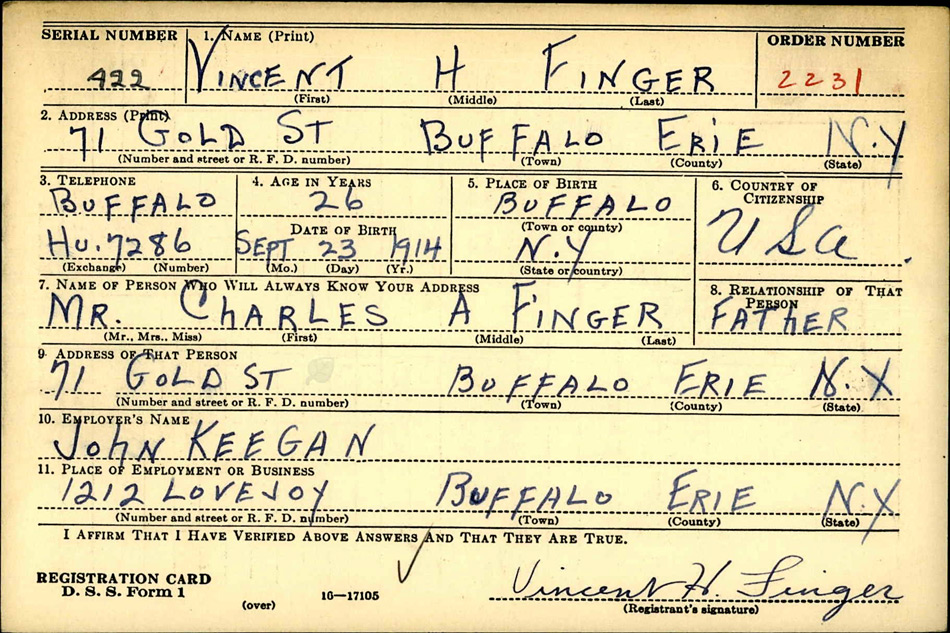 SERIAL NUMBER 1. NAME (Print) ORDER NUMBER
422 VINCENT H FINGER 2231
(First) (Middle) (Last)
2. ADDRESS (Print)
71 GOLD ST BUFFALO ERIE N.Y
(Number and street or R. F. D. number) (Town) (County) (State)
3. TELEPHONE 4. AGE IN YEARS 5. PLACE OF BIRTH 6. COUNTRY OF CITIZENSHIP
BUFFALO 26 BUFFALO
DATE OF BIRTH (Town or county)
HU. 7286 SEPT 23 1914 N.Y USA.
(Exchange) (Number) (Mo.) (Day) (Yr.) (State or country)
7. NAME OF PERSON WHO WILL ALWAYS KNOW YOUR ADDRESS 8. RELATIONSHIP OF THAT PERSON
MR. CHARLES A FINGER FATHER
(Mr., Mrs., Miss) (First) (Middle) (Last)
9. ADDRESS OF THAT PERSON
71 GOLD ST BUFFALO ERIE N.Y
(Number and street or R. F. D. number) (Town) (County) (State)
10. EMPLOYER'S NAME
JOHN KEEGAN
11. PLACE OF EMPLOYMENT OR BUSINESS
1212 LOVEJOY BUFFALO ERIE N.Y
(Number and street or R. F. D. number) (Town) (County) (State)
I AFFIRM THAT I HAVE VERIFIED ABOVE ANSWERS AND THAT THEY ARE TRUE.
REGISTRATION CARD
D. S. S. Form 1 16—17105 Vincent H. Finger
(over) (Registrant's signature)